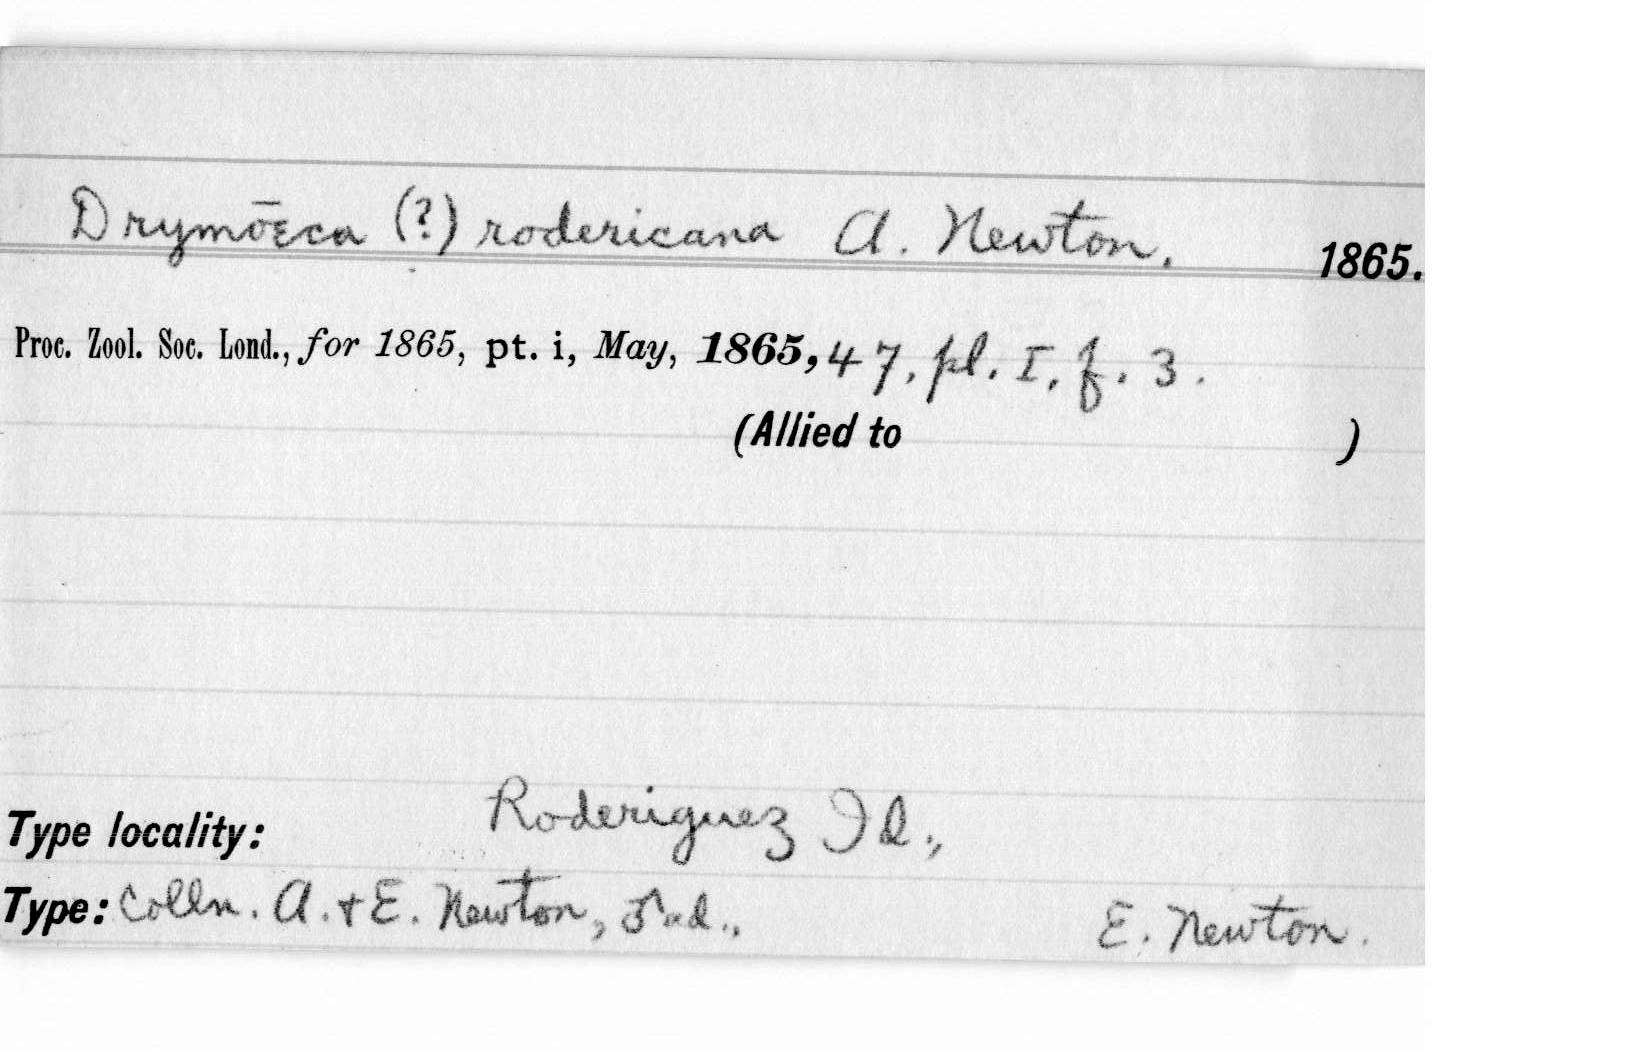 Drymœca (?) rodericana A. Newton. 1865.
Proc. Zool. Soc. Lond., for 1865, pt. i, May, 1865, 47, pl. I, f. 3.
(Allied to )
Type locality: Roderiguez Id.,
Type: Colln. A. + E. Newton, ♂ ad., E. Newton.